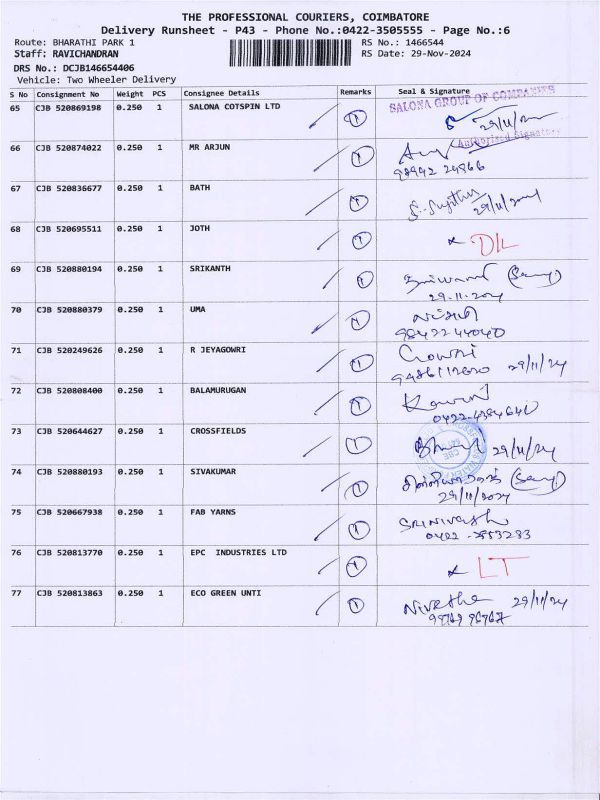 THE PROFESSIONAL COURIERS, COIMBATORE
Delivery Runsheet - P43 - Phone No.:0422-3505555 - Page No.:6
Route: BHARATHI PARK 1 RS No.: 1466544
Staff: RAVICHANDRAN RS Date: 29-Nov-2024
DRS No.: DCJB146654406
Vehicle: Two Wheeler Delivery
S No Consignment No Weight PCS Consignee Details Remarks Seal & Signature
65 CJB 520869198 0.250 1 SALONA COTSPIN LTD 1 SALONA GROUP OF COMPANIES
Authorised Signatory
66 CJB 520874022 0.250 1 MR ARJUN 1
67 CJB 520836677 0.250 1 BATH 1 S. Sujitha 29/11/2024
68 CJB 520695511 0.250 1 JOTH 1 DL
69 CJB 520880194 0.250 1 SRIKANTH 1
29.11.2024
70 CJB 520880379 0.250 1 UMA 1
98422 44040
71 CJB 520249626 0.250 1 R JEYAGOWRI 1 Gowri 29/11/24
72 CJB 520808400 0.250 1 BALAMURUGAN 1
73 CJB 520644627 0.250 1 CROSSFIELDS 1 29/11/24
74 CJB 520880193 0.250 1 SIVAKUMAR 1
29/11/2024
75 CJB 520667938 0.250 1 FAB YARNS 1 SRINIVASH
76 CJB 520813770 0.250 1 EPC INDUSTRIES LTD 1 LT
77 CJB 520813863 0.250 1 ECO GREEN UNTI 1 Nivetha 29/11/24